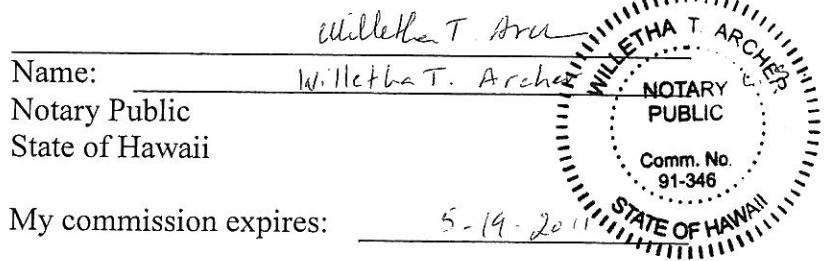 Willetha T. Archer
Name: Willetha T. Archer
Notary Public
State of Hawaii
My commission expires: 5-19-2011
WILLETHA T. ARCHER
NOTARY
PUBLIC
Comm. No.
91-346
STATE OF HAWAII